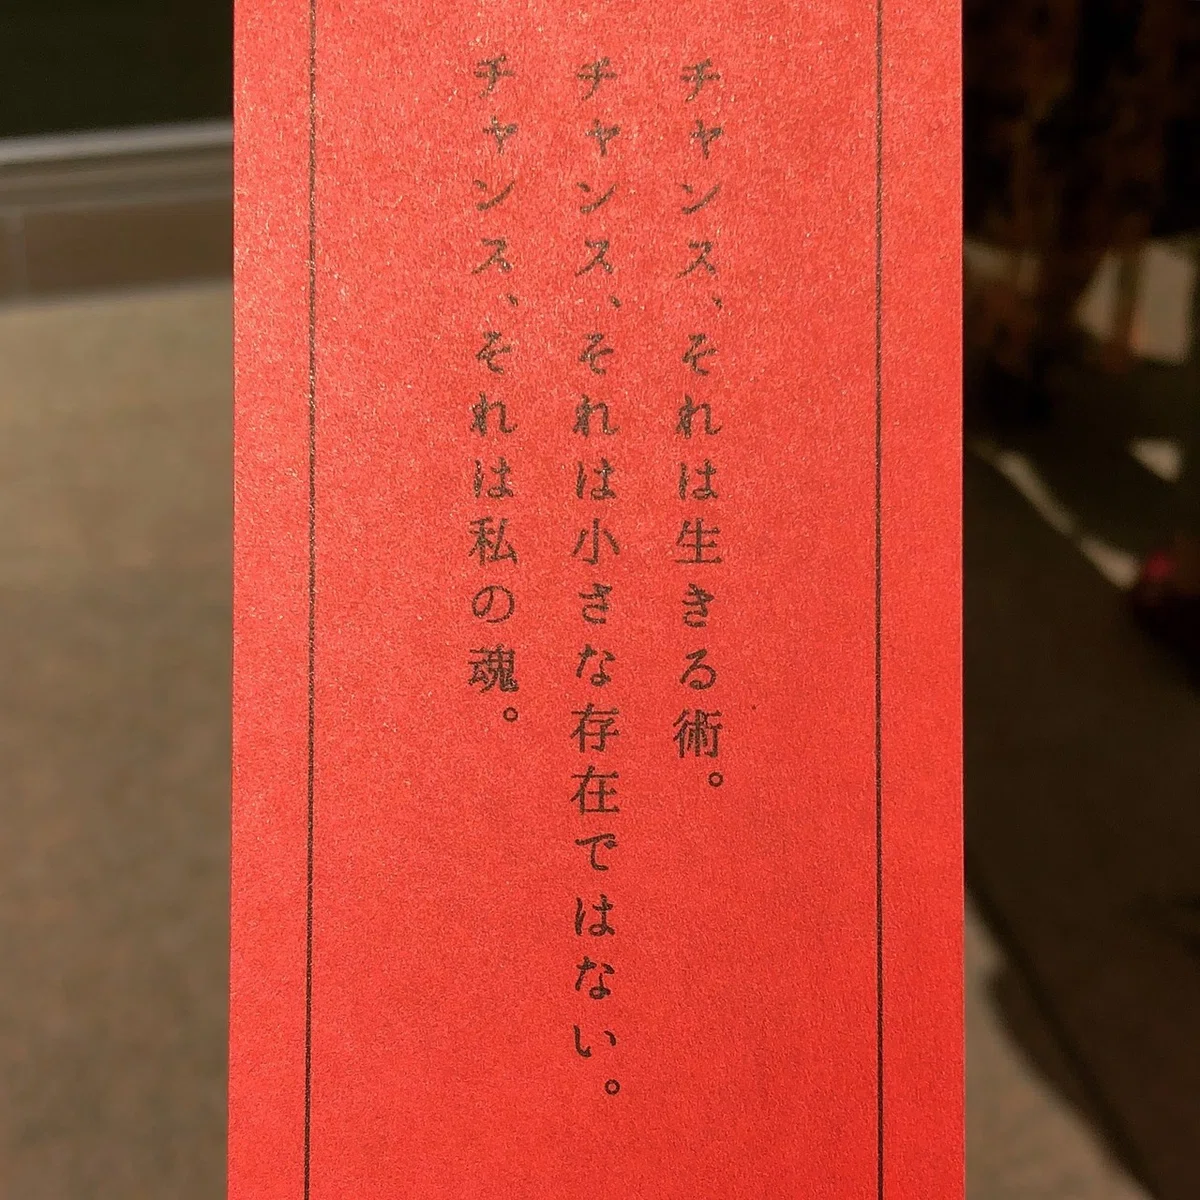 チャンス、それは生きる術。
チャンス、それは小さな存在ではない。
チャンス、それは私の魂。